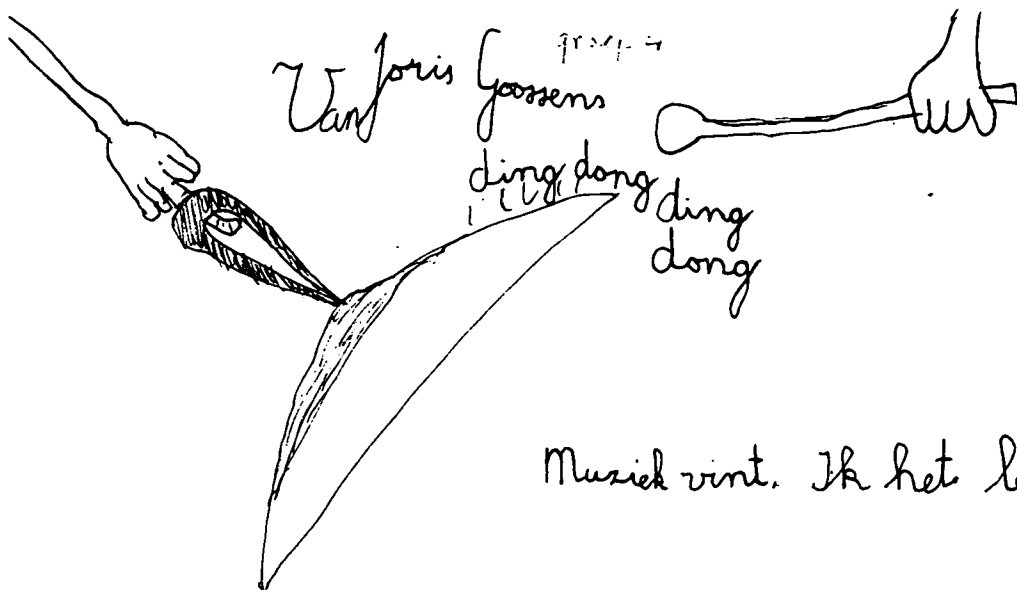 Van Joris Goossens
ding dong
ding
dong
Muziek vint. Ik het